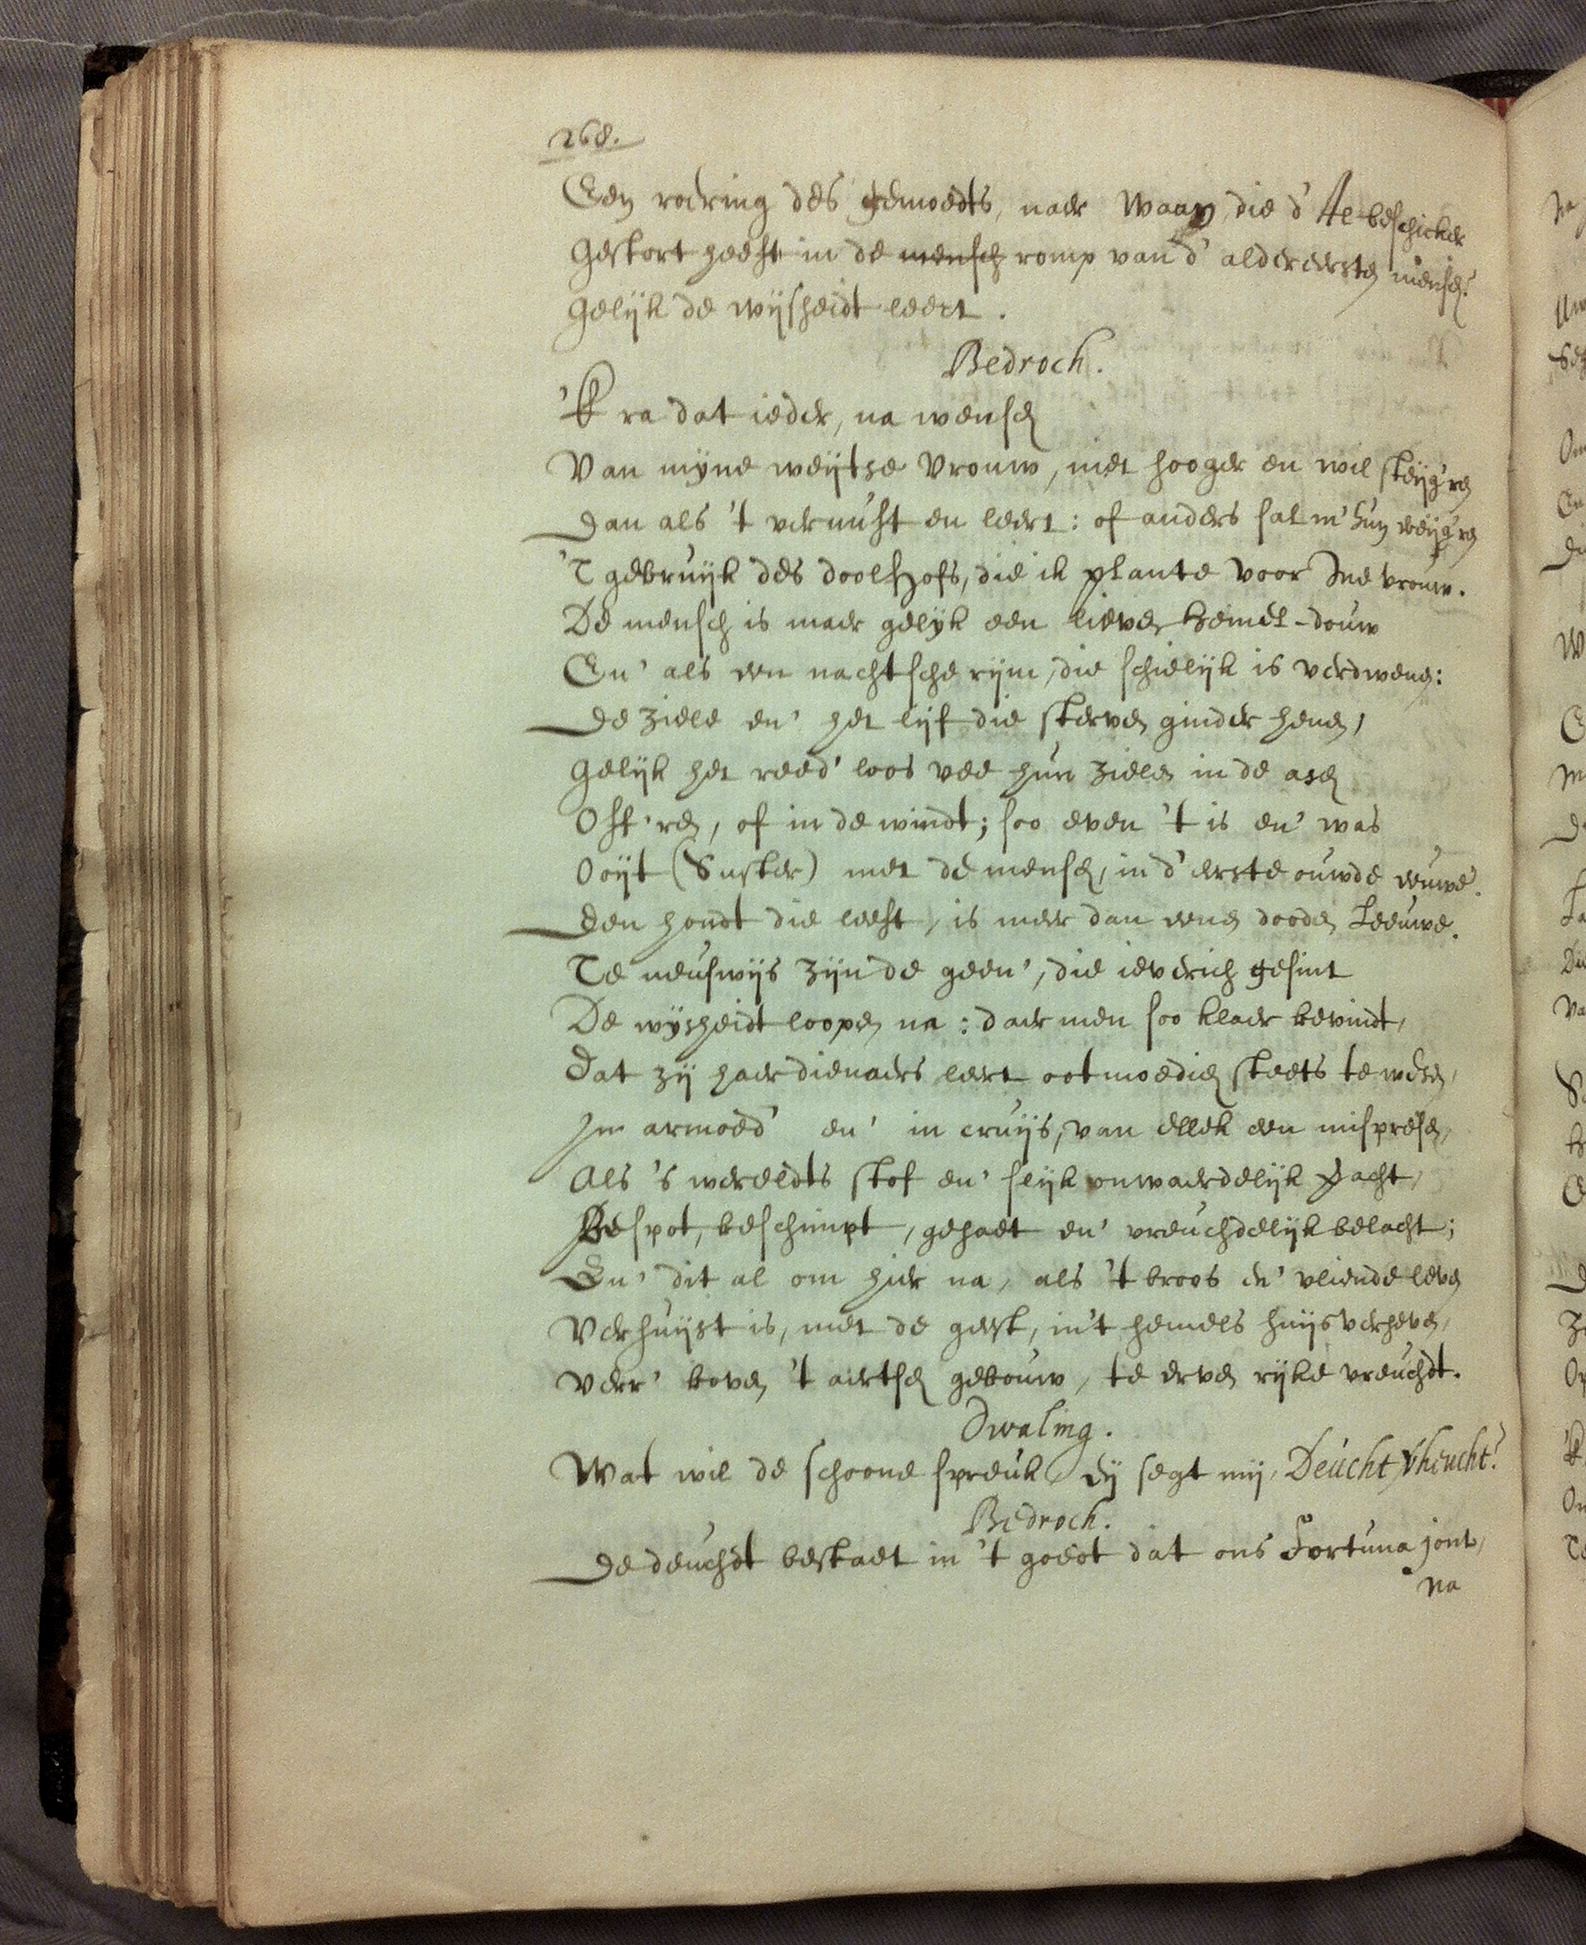 268.
Een roering des gemoedts, naer waan, die d' Al-beschicker
Gestort heeft in de mensch romp van d' aldereersten mensch?
Gelijk de wijsheidt leert.
Bedroch.
'K ra dat ieder, na wensch
Van mijne weijtse Vrouw, niet hooger en wil steijg'ren
Dan als 't vernuft en leert: of anders sal m' hun weijg'ren
'T gebruijk des doolhofs, die ik plante voor vrouw.
De mensch is maer gelijk een lieven hemel-douw
En' als een nachtsche rijm, die schielijk is verdwenen:
De ziele en' het lijf die sterven ginder henen,
Gelijk het reed'loos vee hun zielen in de assen
Off'ren, of in de windt; soo even 't is en' was
Ooijt (Suster) met de mensch, in d' eerste ouwde eeuwe.
Den hondt die leeft, is meer dan eenen dooden Leeuwe.
Te neuswijs zijn de geen', die ieverich gesint
De wijsheidt loopen na: daer men soo klaer bevindt,
Dat zij haer dienaers leert ootmoedich steets te wesen,
In armoed' en' in cruijs, van ellek een mispresen,
Als 's wereldts stof en' slijk onwaerdelijk geacht,
Bespot, beschimpt, gehaet en' vreuchdelijk belacht;
En' dit al om hier na, als 't broos en' vliende leven
Verhuijst is, met de geest, in 't hemels huijs verheven,
Verr' boven 't aertsch gebouw, te erven rijke vreuchdt.
Dwaling.
Wat wil de schoone spreuk eij segt mij, Deucht Vheucht?
Bedroch.
De deuchdt bestaet in 't goedt dat ons Fortuna jont,
Na